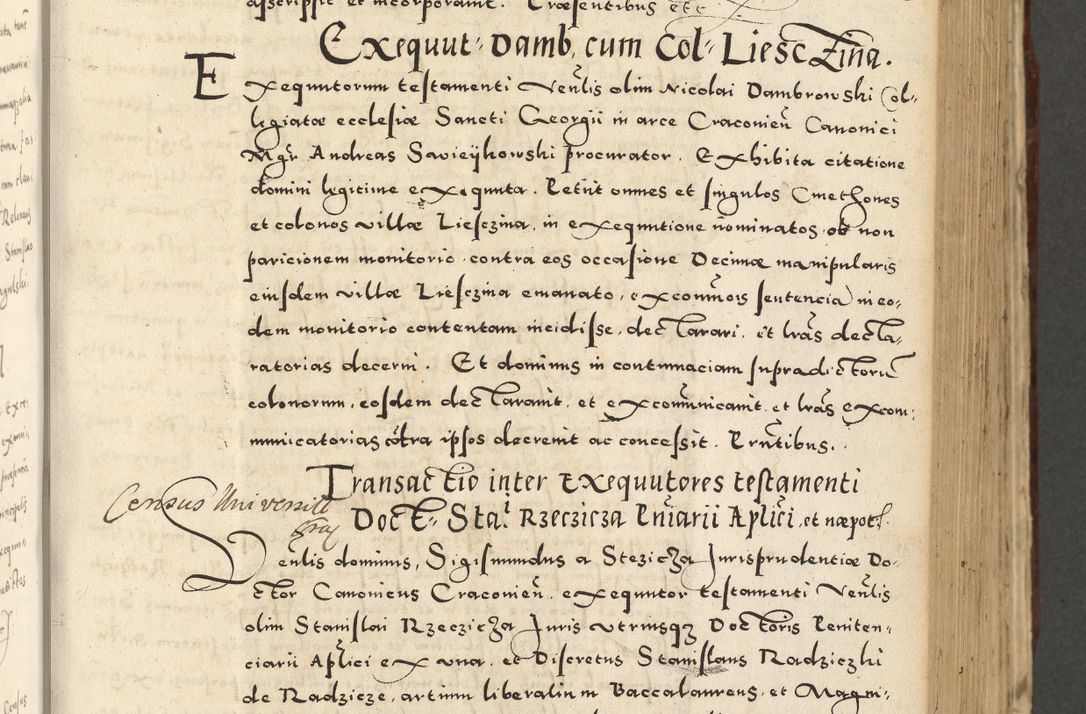 ascripsit et incorporavit. Præsentibus etc
Exequut: Damb, cum Col: LiescZina.
Exequutorum testamenti Venlis olim Nicolai Dambrowski Col-
legiatæ ecclesiæ Sancti Georgii in arce Craconien Canonici
Mgr Andreas Savieijkowski procurator. Exhibita citatione
domini legitime exequuta. Petiit omnes et singulos Cmethones
et colonos villæ Liesczina, in exequutione nominatos ob non
paricionem monitorio contra eos occasione Decimæ manipularis
eiusdem villæ Liesczina emanato, excomunois sentencia in eo-
dem monitorio contentam incidisse, declarari, et lras decla-
ratorias decerni. Et dominus in contumaciam supradictoru
colonorum, eosdem declaravit, et excomunicavit, et lras excom-
municatorias cotra ipsos decrevit ac concessit. Prntibus.
Transactio inter Exequutores testamenti
Census Universitt
Doct: Sta: Rzeczicza Pniarii Aplici, et næpot:
Venlis dominus, Sigismundus a Stezicza Jurisprudentiæ Do-
ctor Canonicus Craconien, exequutor testamenti Venlis
olim Stanislai Rzeczicza Juris utriusqz Doctoris Peniten-
ciarii Aplici ex una, et Discretus Stanislaus Radziczki
de Radzicze, artium liberalium Baccalaureus, et Magni-